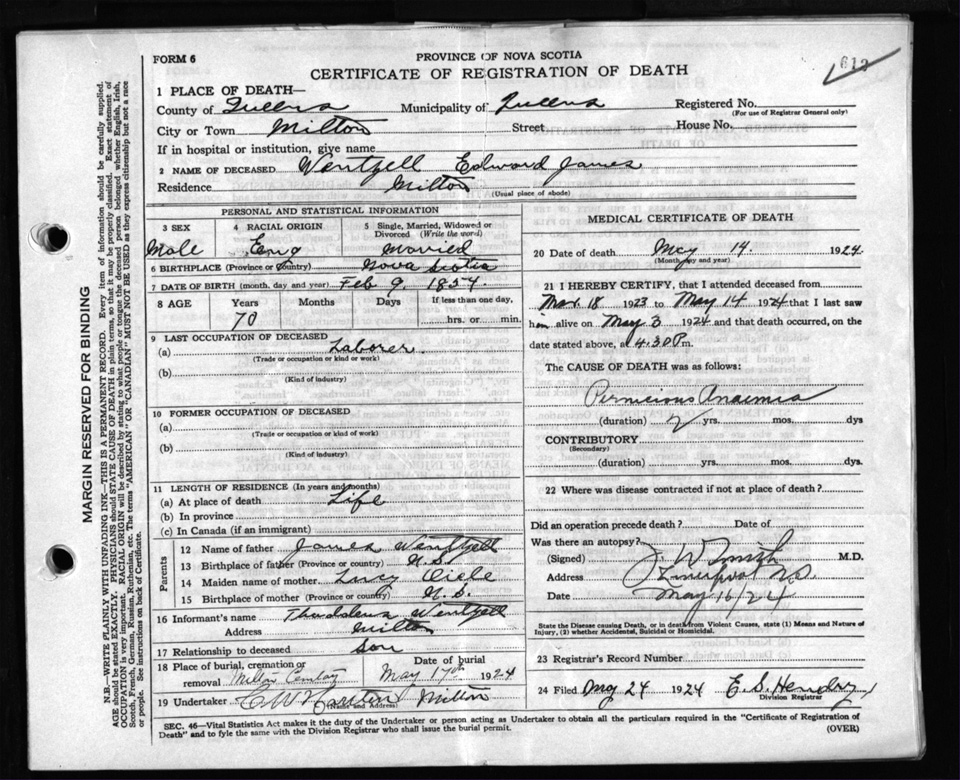 FORM 6
PROVINCE OF NOVA SCOTIA
CERTIFICATE OF REGISTRATION OF DEATH
612
1 PLACE OF DEATH—
County of Queens Municipality of Queens Registered No.
(For use of Registrar General only)
City or Town Milton Street House No.
If in hospital or institution, give name
2 NAME OF DECEASED Wentzell Edward James
Residence Milton (Usual place of abode)
PERSONAL AND STATISTICAL INFORMATION
3 SEX 4 RACIAL ORIGIN 5 Single, Married, Widowed or Divorced (Write the word)
Male Eng Married
6 BIRTHPLACE (Province or Country) Nova Scotia
7 DATE OF BIRTH (month, day and year) Feb 9, 1854.
8 AGE Years Months Days If less than one day,
70 hrs. or min.
9 LAST OCCUPATION OF DECEASED
(a) Laborer.
(Trade or occupation or kind or work)
(b)
(Kind of industry)
10 FORMER OCCUPATION OF DECEASED
(a)
(Trade or occupation or kind of work)
(b)
(Kind of industry)
11 LENGTH OF RESIDENCE (In years and months)
(a) At place of death Life
(b) In province
(c) In Canada (if an immigrant)
Parents
12 Name of father James Wentzell
13 Birthplace of father (Province or country) N.S.
14 Maiden name of mother Lucy
15 Birthplace of mother (Province or country) N.S.
16 Informant's name Thaddeus Wentzell
Address Milton
17 Relationship to deceased Son
18 Place of burial, cremation or removal Milton Date of burial May 17th 1924
19 Undertaker (Name and Address) Milton
MEDICAL CERTIFICATE OF DEATH
20 Date of death May 14. 1924.
(Month, day and year)
21 I HEREBY CERTIFY, that I attended deceased from
Mar. 18 1923 to May 14 1924 that I last saw
him alive on May 3 1924 and that death occurred, on the
date stated above, at 4.30 P.m.
The CAUSE OF DEATH was as follows:
Pernicious Anaemia
(duration) 2 yrs. mos. dys
CONTRIBUTORY
(Secondary)
(duration) yrs. mos. dys.
22 Where was disease contracted if not at place of death?
Did an operation precede death? Date of
Was there an autopsy?
(Signed) J. W Smith M.D.
Address Liverpool N.S.
Date May 16/24
State the Disease causing Death, or in death from Violent Causes, state (1) Means and Nature of
Injury, (2) whether Accidental, Suicidal or Homicidal.
23 Registrar's Record Number
24 Filed 24 1924 E. S. Hendry
Division Registrar
SEC. 46—Vital Statistics Act makes it the duty of the Undertaker or person acting as Undertaker to obtain all the particulars required in the "Certificate of Registration of
Death" and to fyle the same with the Division Registrar who shall issue the burial permit.
(OVER)
MARGIN RESERVED FOR BINDING
N.B.—WRITE PLAINLY WITH UNFADING INK—THIS IS A PERMANENT RECORD. Every item of information should be carefully supplied.
AGE should be stated EXACTLY. PHYSICIANS should STATE CAUSE OF DEATH in plain terms, so that it may be properly classified. Exact statement of
OCCUPATION is very important. RACIAL ORIGIN will be described by stating to what people or tongue the deceased person belonged whether English, Irish,
Scotch, French, German, Russian, Ruthenian, etc. The terms "AMERICAN" OR "CANADIAN" MUST NOT BE USED as they express citizenship but not a race
or people. See instructions on back of Certificate.